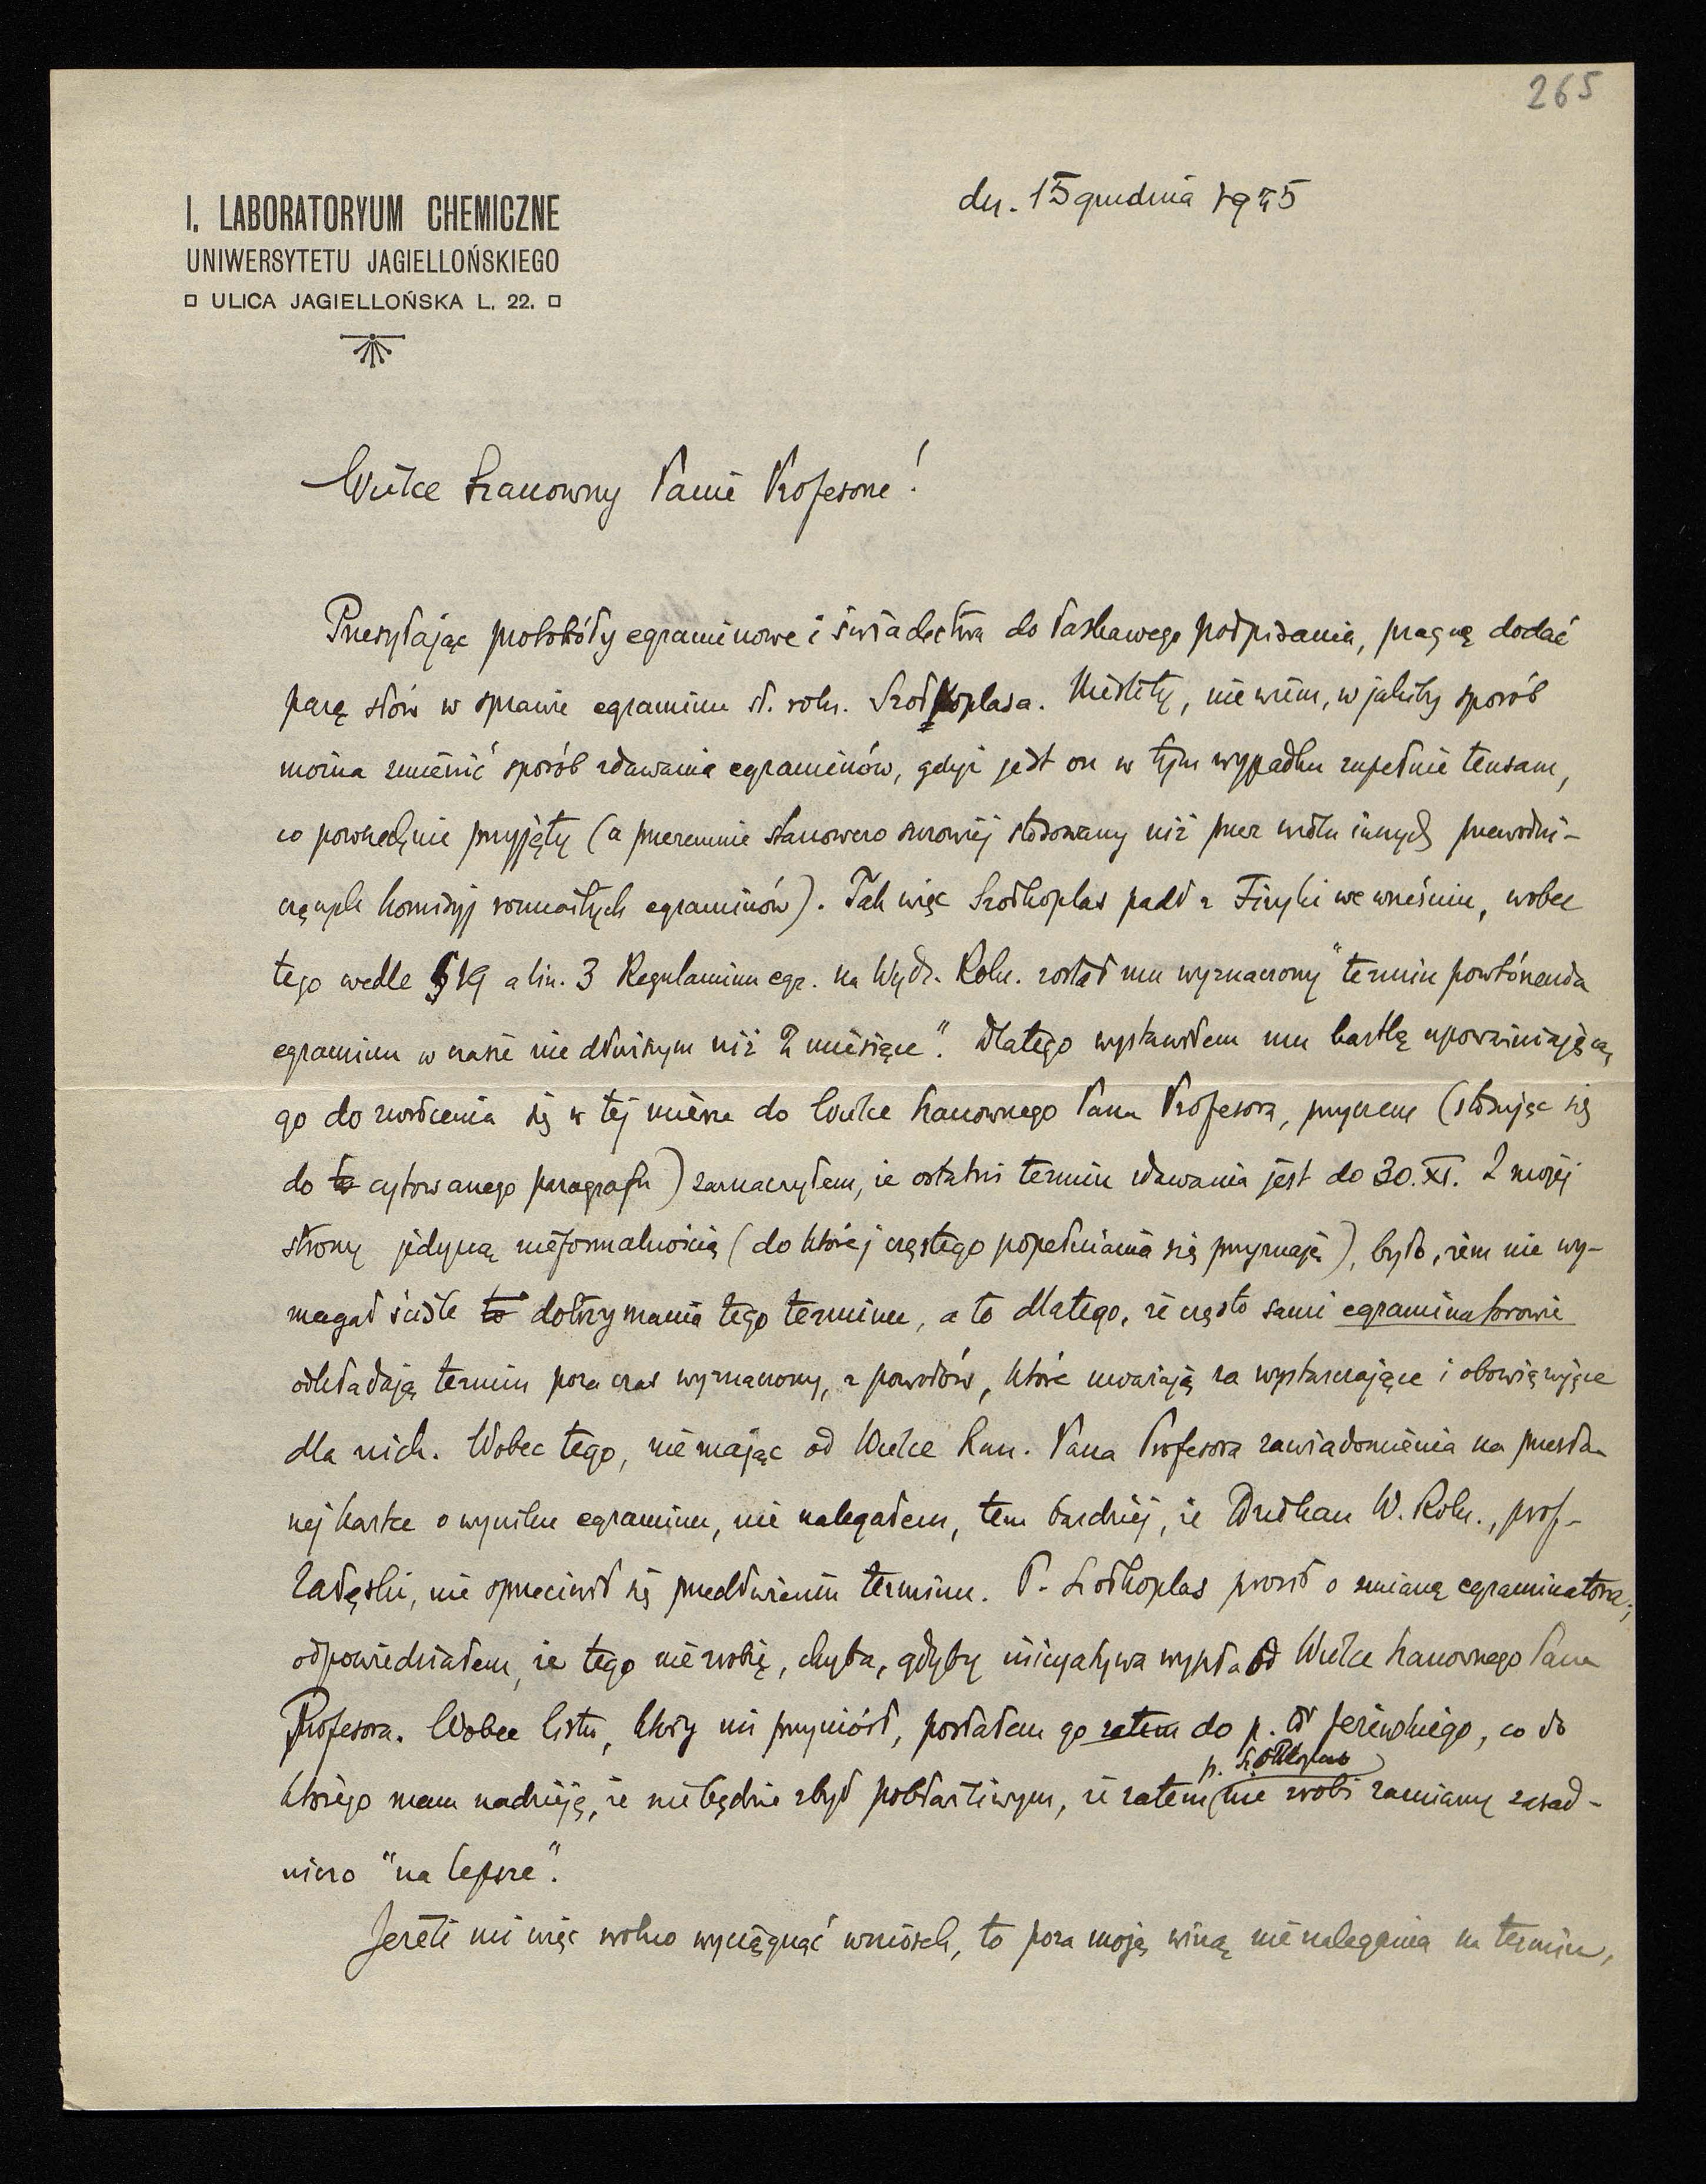 265
I. LABORATORYUM CHEMICZNE
UNIWERSYTETU JAGIELLOŃSKIEGO
ULICA JAGIELLOŃSKA L. 22.
dn. 15 grudnia 1925
Wielce Szanowny Panie Profesorze!
Przesyłając protokóły egzaminowe i świadectwa do łaskawego podpisania, pragnę dodać
parę słów w sprawie egzaminu st. roln. Szołkoplasa. Niestety, nie wiem, w jakiby sposób
można zmienić sposób zdawania egzaminów, gdyż jest on w tym wypadku zupełnie tensam,
co powszechnie przyjęty (a przezemnie stanowczo surowiej stosowany niż przez wielu innych przewodni-
czących komisyj rozmaitych egzaminów). Tak więc Szołkoplas padł z Fizyki we wrześniu, wobec
tego wedle §19 alin. 3 Regulaminu egz. na Wydz. Roln. został mu wyznaczony "termin powtórzenia
egzaminu w czasie nie dłuższym niż 2 miesiące". Dlatego wystawiłem mu kartkę upoważniającą
go do zwrócenia się w tej mierze do Wielce Szanownego Pana Profesora, przyczem (stosując się
do to cytowanego paragrafu) zaznaczyłem, że ostatni termin zdawania jest do 30.XI. Z mojej
strony jedyną nieformalnością (do której częstego popełniania się przyznaję), było, żem nie wy-
magał ściśle to dotrzymania tego terminu, a to dlatego, że często sami egzaminatorowie
odkładają termin poza czas wyznaczony, z powodów, które uważają za wystarczające i obowiązujące
dla nich. Wobec tego, nie mając od Wielce Szan. Pana Profesora zawiadomienia na przesła-
nej kartce o wyniku egzaminu, nie nalegałem, tem bardziej, że Dziekan W. Roln., prof.
Załęski, nie sprzeciwił się przedłużeniu terminu. P. Szołkoplas prosił o zmianę egzaminatora;
odpowiedziałem, że tego nie zrobię, chyba, gdyby inicyatywa wyszła od Wielce Szanownego Pana
Profesora. Wobec listu, który mi przyniósł, posłałem go zatem do p. dr Jeżewskiego, co do
którego mam nadzieję, że nie będzie zbyt pobłażliwym, że zatem p. Szołkoplas nie zrobi zamiany zasad-
niczo "na lepsze".
Jeżeli mi więc wolno wyciągnąć wniosek, to poza moją winą nienalegania na termin,